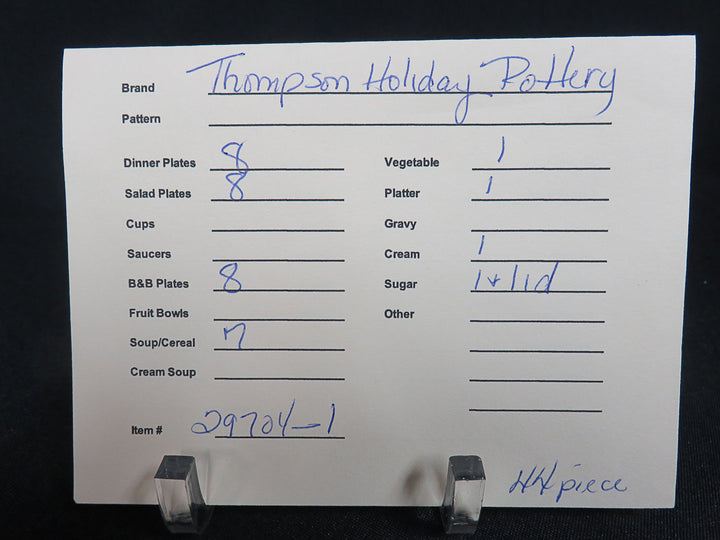 Brand Thompson Holiday Pottery
Pattern
Dinner Plates 8 Vegetable 1
Salad Plates 8 Platter 1
Cups Gravy
Saucers Cream 1
B&B Plates 8 Sugar 1 + lid
Fruit Bowls Other
Soup/Cereal 7
Cream Soup
Item # 29704-1
44 piece